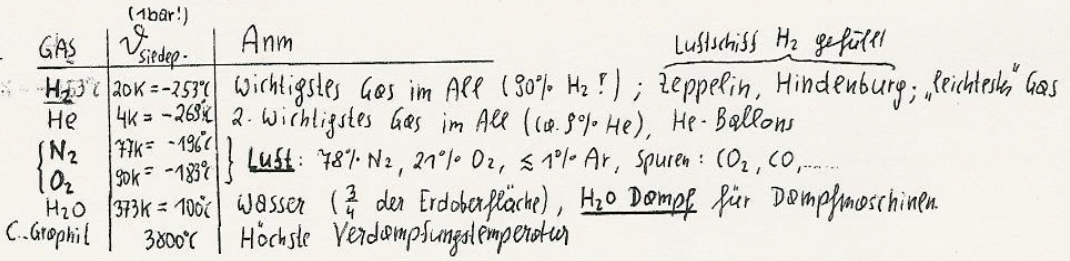 (1bar!)
GAS ϑSiedep. Anm Luftschiff H2 gefüllt
H2 20K = -253°C Wichtigstes Gas im All (90% H2!); Zeppelin, Hindenburg; „leichtestes" Gas
He 4K = -269°C 2. Wichtigstes Gas im All (ca. 9% He), He-Ballons
N2 77K = -196°C
O2 90K = -183°C } Luft: 78% N2, 21% O2, ≲ 1% Ar, Spuren: CO2, CO, ......
H2O 373K = 100°C Wasser (3/4 der Erdoberfläche), H2O Dampf für Dampfmaschinen.
C..Graphit 3800°C Höchste Verdampfungstemperatur